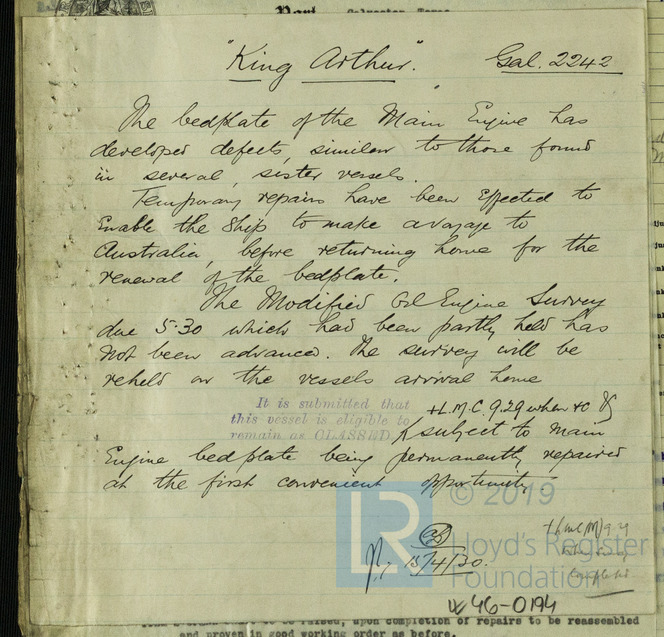 Port Galveston, Texas
"King Arthur". Gal. 2242
The bedplate of the Main Engine has
developed defects, similar to those found
in several, sister vessels.
Temporary repairs have been Effected to
Enable the Ship to make a voyage to
Australia, before returning home for the
renewal of the bedplate.
The Modified Oil Engine Survey
due 5.30 which had been partly held has
not been advanced. The survey will be
reheld on the vessels arrival home
It is submitted that
this vessel is eligible to
remain as CLASSED
+L.M.C. 9.29 when
subject to Main
Engine bedplate being permanently repaired
at the first convenient opportunity.
13/4/30.
LR
© 2019
Lloyd's Register
Foundation
W46-0194
upon completion of repairs to be reassembled
and proven in good working order as before.